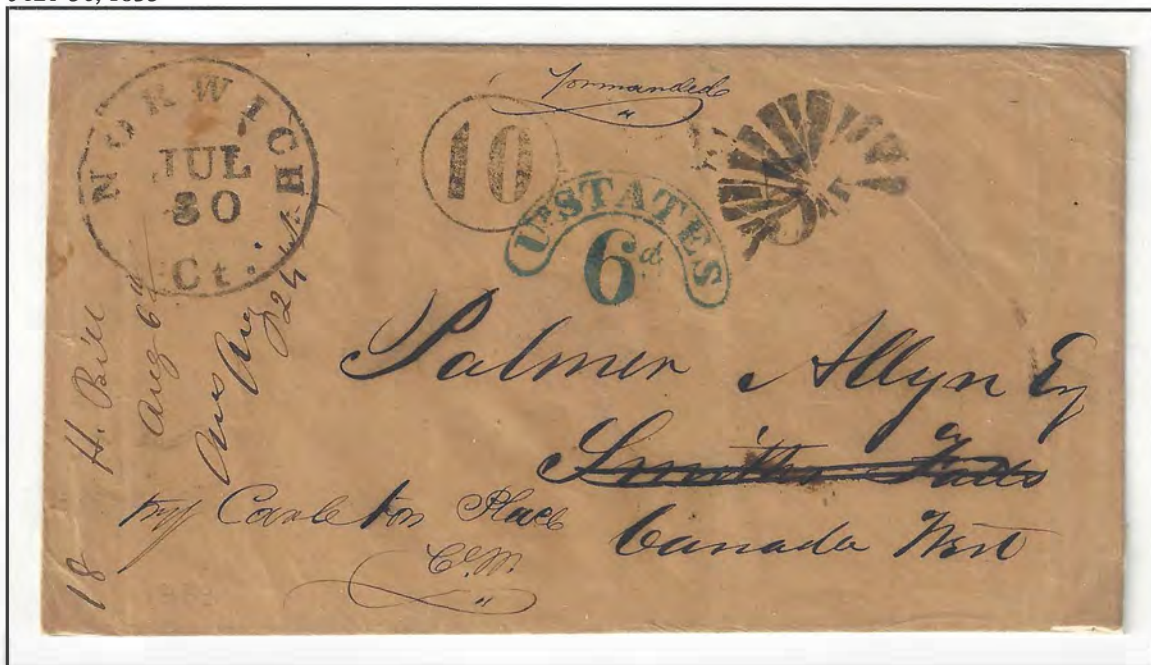 NORWICH
JUL
30
Ct.
10
forwarded
"
Uᴰ STATES
6ᵈ
Palmer Allyn Esq
Smiths Falls
Canada West
try Carleton Place
C.W.
"
18 H. Bill
Aug 6th
Ans Aug 24